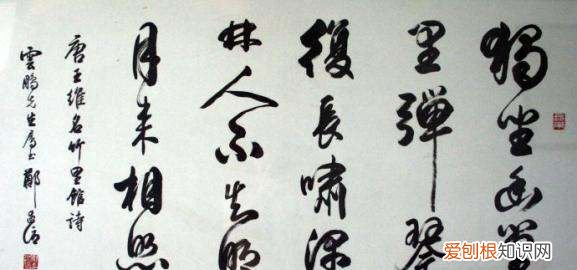 獨坐幽篁
里彈琴
復長嘯深
林人不知明
月来相照
唐王維名竹里館詩
雲鵬先生属书 鄭
爱刨根知识网